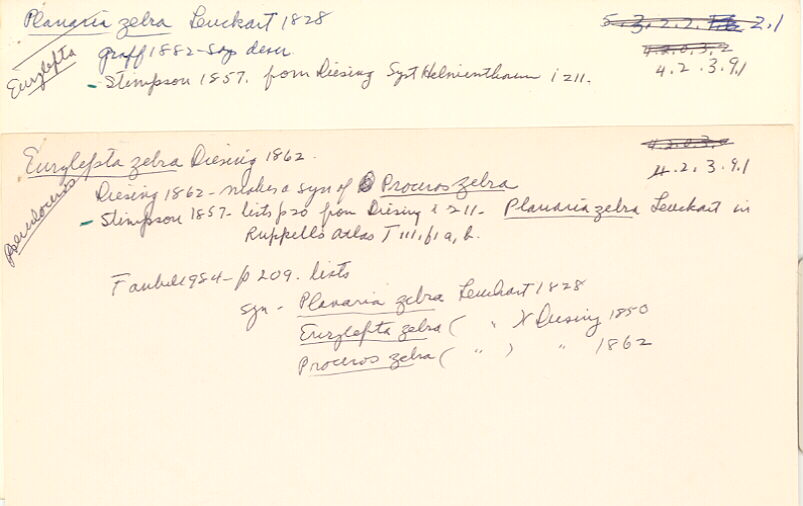 Planaria zebra Leuckart 1828
5.3.2.2. 2.1
Eurylepta
Graff 1882 - Says desc
4.2.0.3.2
- Stimpson 1857. from Diesing Syst Helminthorum i 211.
4.2.3.9.1
Eurylepta zebra Diesing 1862.
4.2.0.3.
4.2.3.9.1
Pseudoceros
Diesing 1862 - makes a syn of Proceros zebra
- Stimpson 1857 - lists p20 from Diesing i 211 - Planaria zebra Leuckart in
Ruppell's atlas T III, f1 a, b.
Faubel 1984 - p 209. lists
syn - Planaria zebra Leuckart 1828
Eurylepta zebra ( " ) Diesing 1850
Proceros zebra ( " ) " 1862